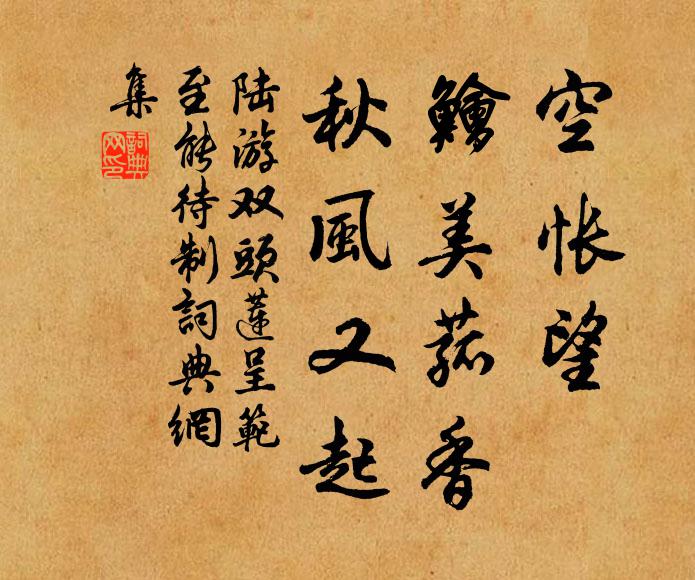 空悵望
鱠美菰香
秋風又起
陆游双頭蓮呈範
至能待制詞典網
集
詞典
网印